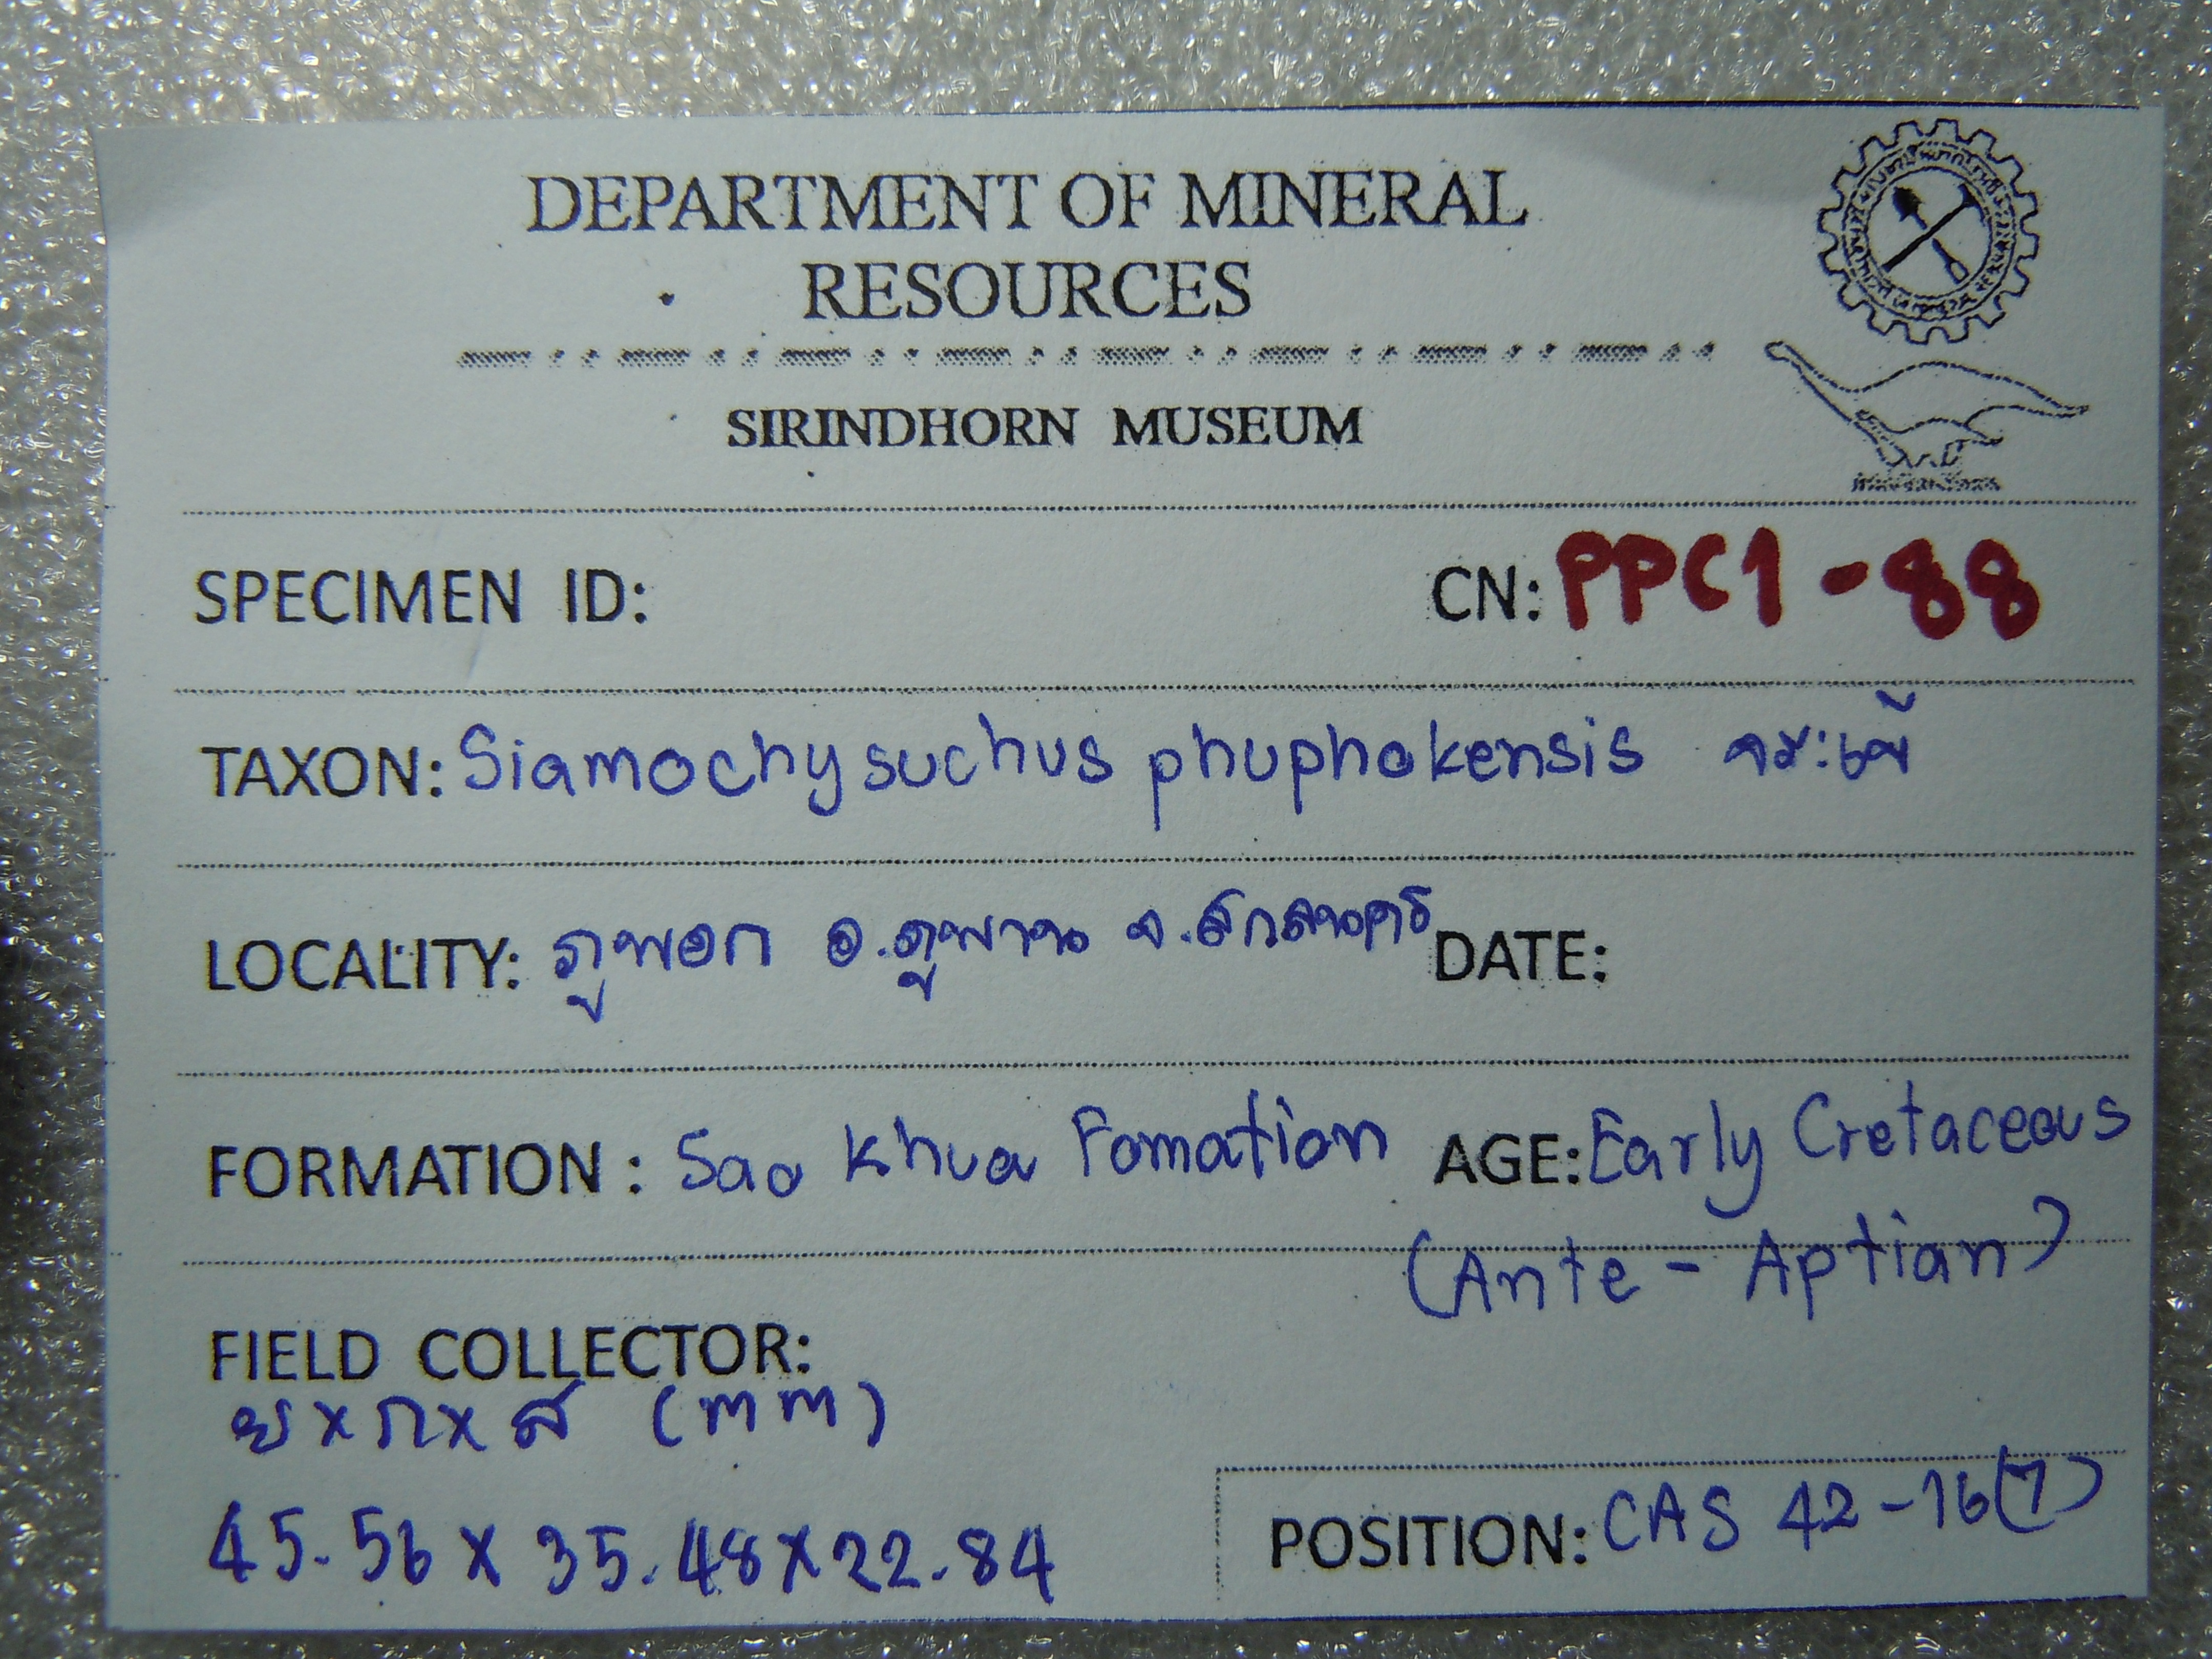 DEPARTMENT OF MINERAL
RESOURCES
SIRINDHORN MUSEUM
SPECIMEN ID: CN: PPC1-88
TAXON: Siamochysuchus phuphokensis จระเข้
LOCALITY: ภูพอก อ.ภูพาน จ.สกลนคร DATE:
FORMATION : Sao Khua Fomation AGE: Early Cretaceous
(Ante - Aptian)
FIELD COLLECTOR:
ย x ก x ส (mm)
45.56 x 35.48 x 22.84
POSITION: CAS 42-16(7)